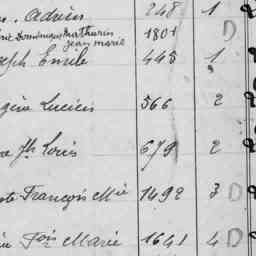 Adrien 248 1
Dominique Mathurin 1801 D
Jean Marie
Joseph Emile 445 1
Lucien 566 2
Jh Louis 679 2
François Mie 1492 3 D
Fois Marie 1641 4 D